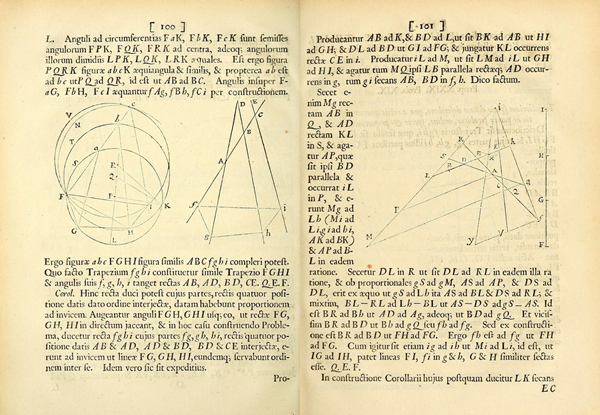 [ 100 ]
L. Anguli ad circumferentias FaK, FbK, FcK sunt semisses
angulorum FPK, FQK, FRK ad centra, adeoq; angulorum
illorum dimidiis LPK, LQK, LRK æquales. Est ergo figura
PQRK figuræ abcK æquiangula & similis, & propterea ab est
ad bc ut PQ ad QR, id est ut AB ad BC. Angulis insuper F-
aG, FbH, FcI æquantur fAg, fBh, fCi per constructionem.
Ergo figuræ abcFGHI figura similis ABCfghi compleri potest.
Quo facto Trapezium fghi constituetur simile Trapezio FGHI
& angulis suis f, g, h, i tanget rectas AB, AD, BD, CE. Q.E.F.
Corol. Hinc recta duci potest cujus partes, rectis quatuor posi-
tione datis dato ordine interjectæ, datam habebunt proportionem
ad invicem. Augeantur anguli FGH, GHI usq; eo, ut rectæ FG,
GH, HI in directum jaceant, & in hoc casu construendo Proble-
ma, ducetur recta fghi cujus partes fg, gh, hi, rectis quatuor po-
sitione datis AB & AD, AD & BD, BD & CE interjectæ, e-
runt ad invicem ut lineæ FG, GH, HI, eundemq; servabunt ordi-
nem inter se. Idem vero sic fit expeditius.
Pro-
[ 101 ]
Producantur AB ad K, & BD ad L, ut sit BK ad AB ut HI
ad GH; & DL ad BD ut GI ad FG; & jungatur KL occurrens
rectæ CE in i. Producatur iL ad M, ut sit LM ad iL ut GH
ad HI, & agatur tum MQ ipsi LB parallela rectæq; AD occur-
rens in g, tum gi secans AB, BD in f, h. Dico factum.
Secet e-
nim Mg rec-
tam AB in
Q, & AD
rectam KL
in S, & aga-
tur AP, quæ
sit ipsi BD
parallela &
occurrat iL
in P, & e-
runt Mg ad
Lh (Mi ad
Li, gi ad hi,
AK ad BK)
& AP ad B-
L in eadem
ratione. Secetur DL in R ut sit DL ad RL in eadem illa ra
tione, & ob proportionales gS ad gM, AS ad AP, & DS ad
DL, erit ex æquo ut gS ad Lh ita AS ad BL & DS ad RL; &
mixtim, BL-RL ad Lh-BL ut AS-DS ad gS-AS. Id
est BR ad Bh ut AD ad Ag, adeoq; ut BD ad gQ. Et vicis-
sim BR ad BD ut Bh ad gQ seu fh ad fg. Sed ex constructi-
one est BR ad BD ut FH ad FG. Ergo fh est ad fg ut FH
ad FG. Cum igitur sit etiam ig ad ih ut Mi ad Li, id est, ut
IG ad IH, patet lineas FI, fi in g & h, G & H similiter sectas
esse. Q.E.F.
In constructione Corollarii hujus postquam ducitur LK secans
EC